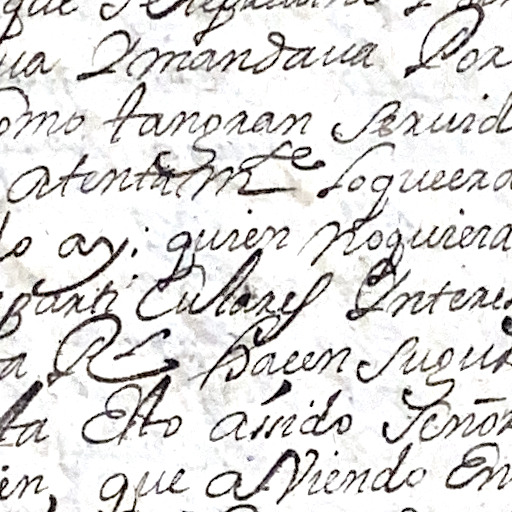 que
ua Y mandaua Por
omo tan gran seruid
atentam.te loqueera
lo ay; quien noquiera
parti Culares Yntere
a Rl hacen sugus
ta Esto assido Señor
ien, que aViendo En